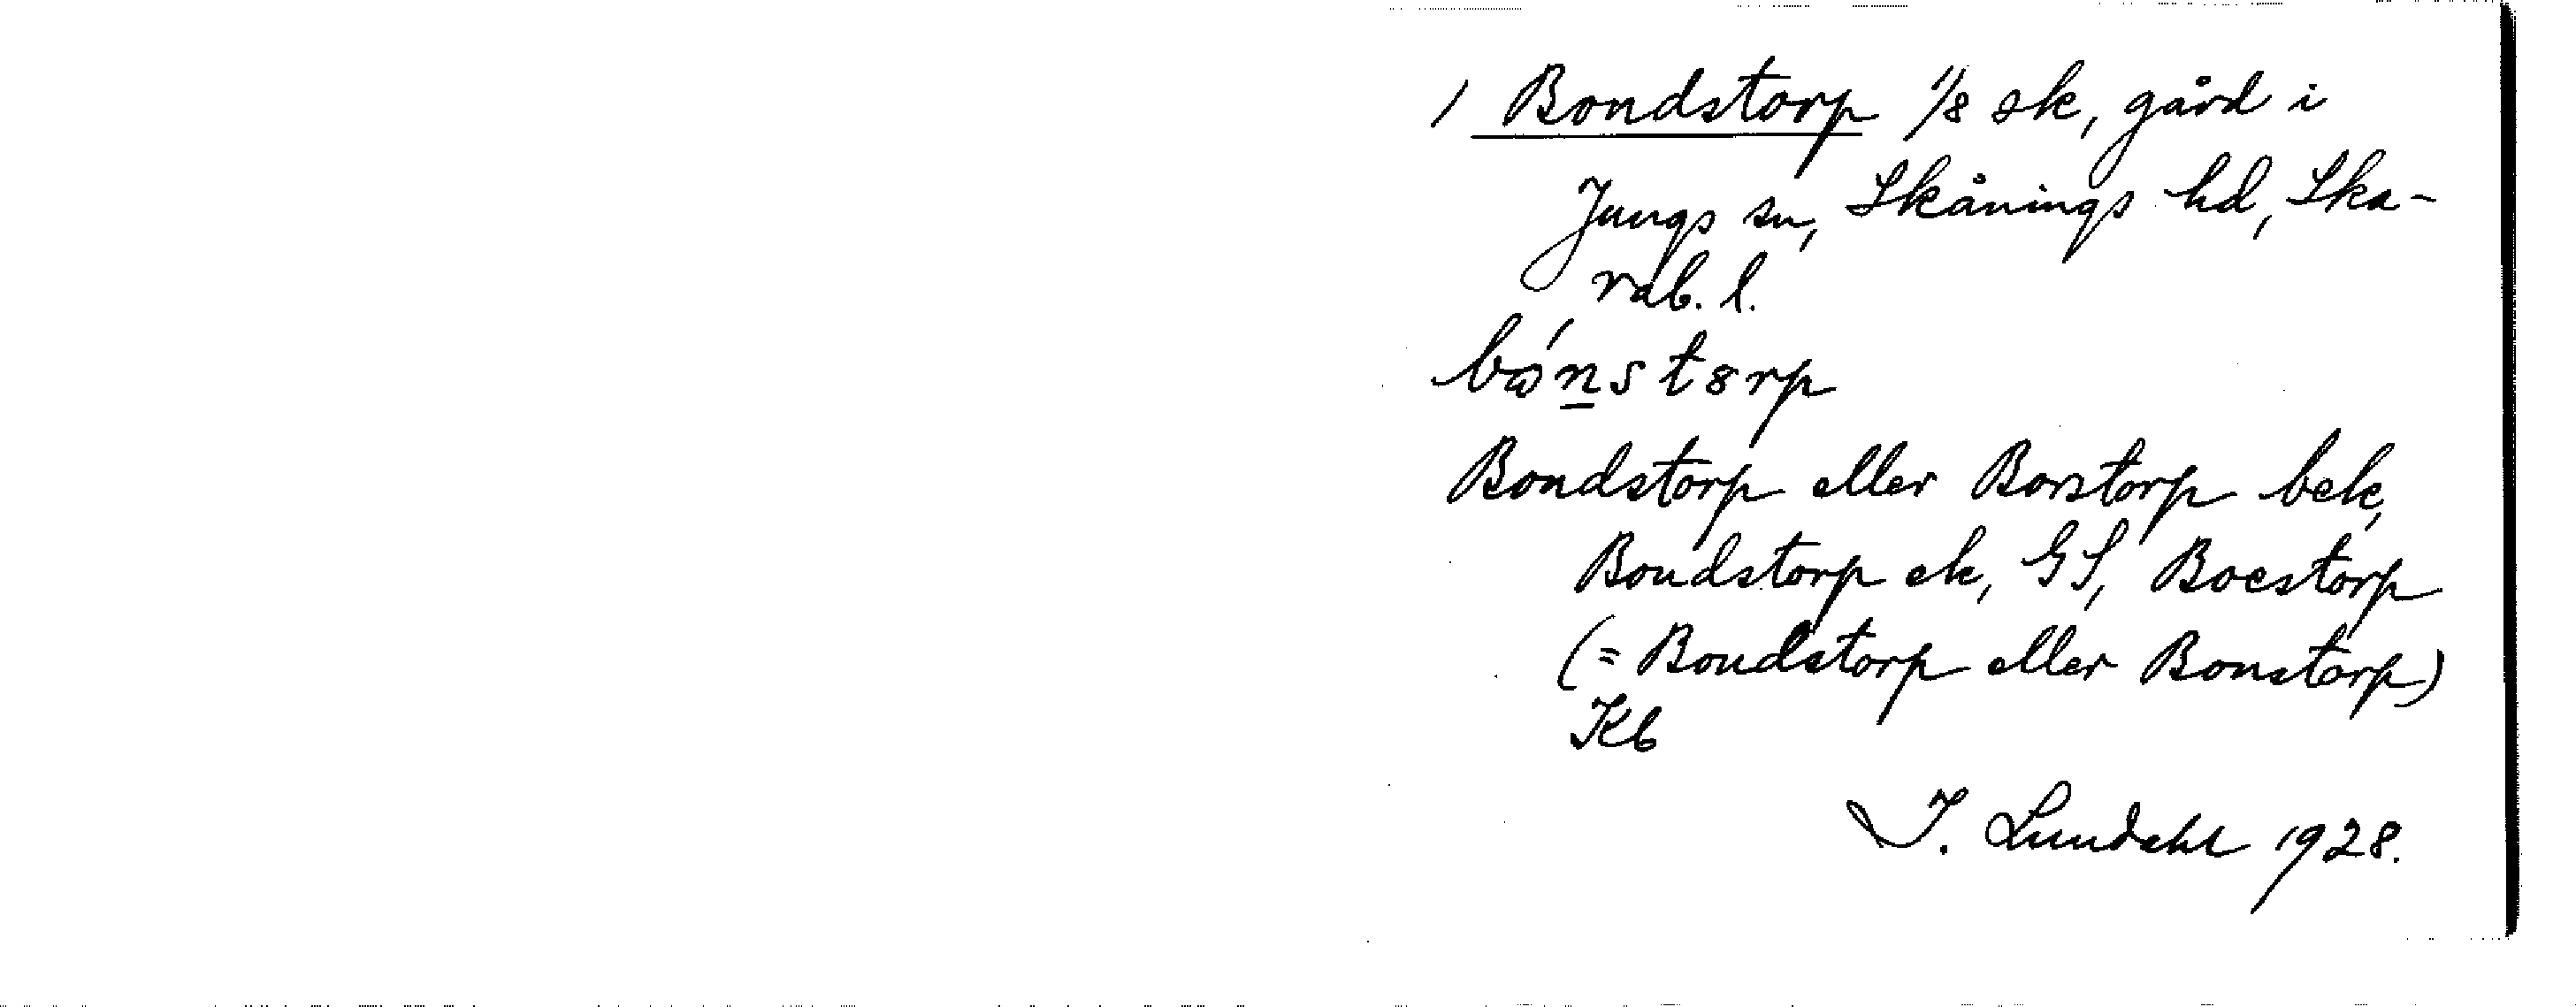 / Bondstorp 1/8 sk, gård i
Jungs sn, Skånings hd, Ska-
rab. l.
bónstorp
Bondstorp eller Borstorp bek,
Bondstorp ek, GS, Boestorp
(= Bondstorp eller Bonstorp)
Kb
I. Lundahl 1928.